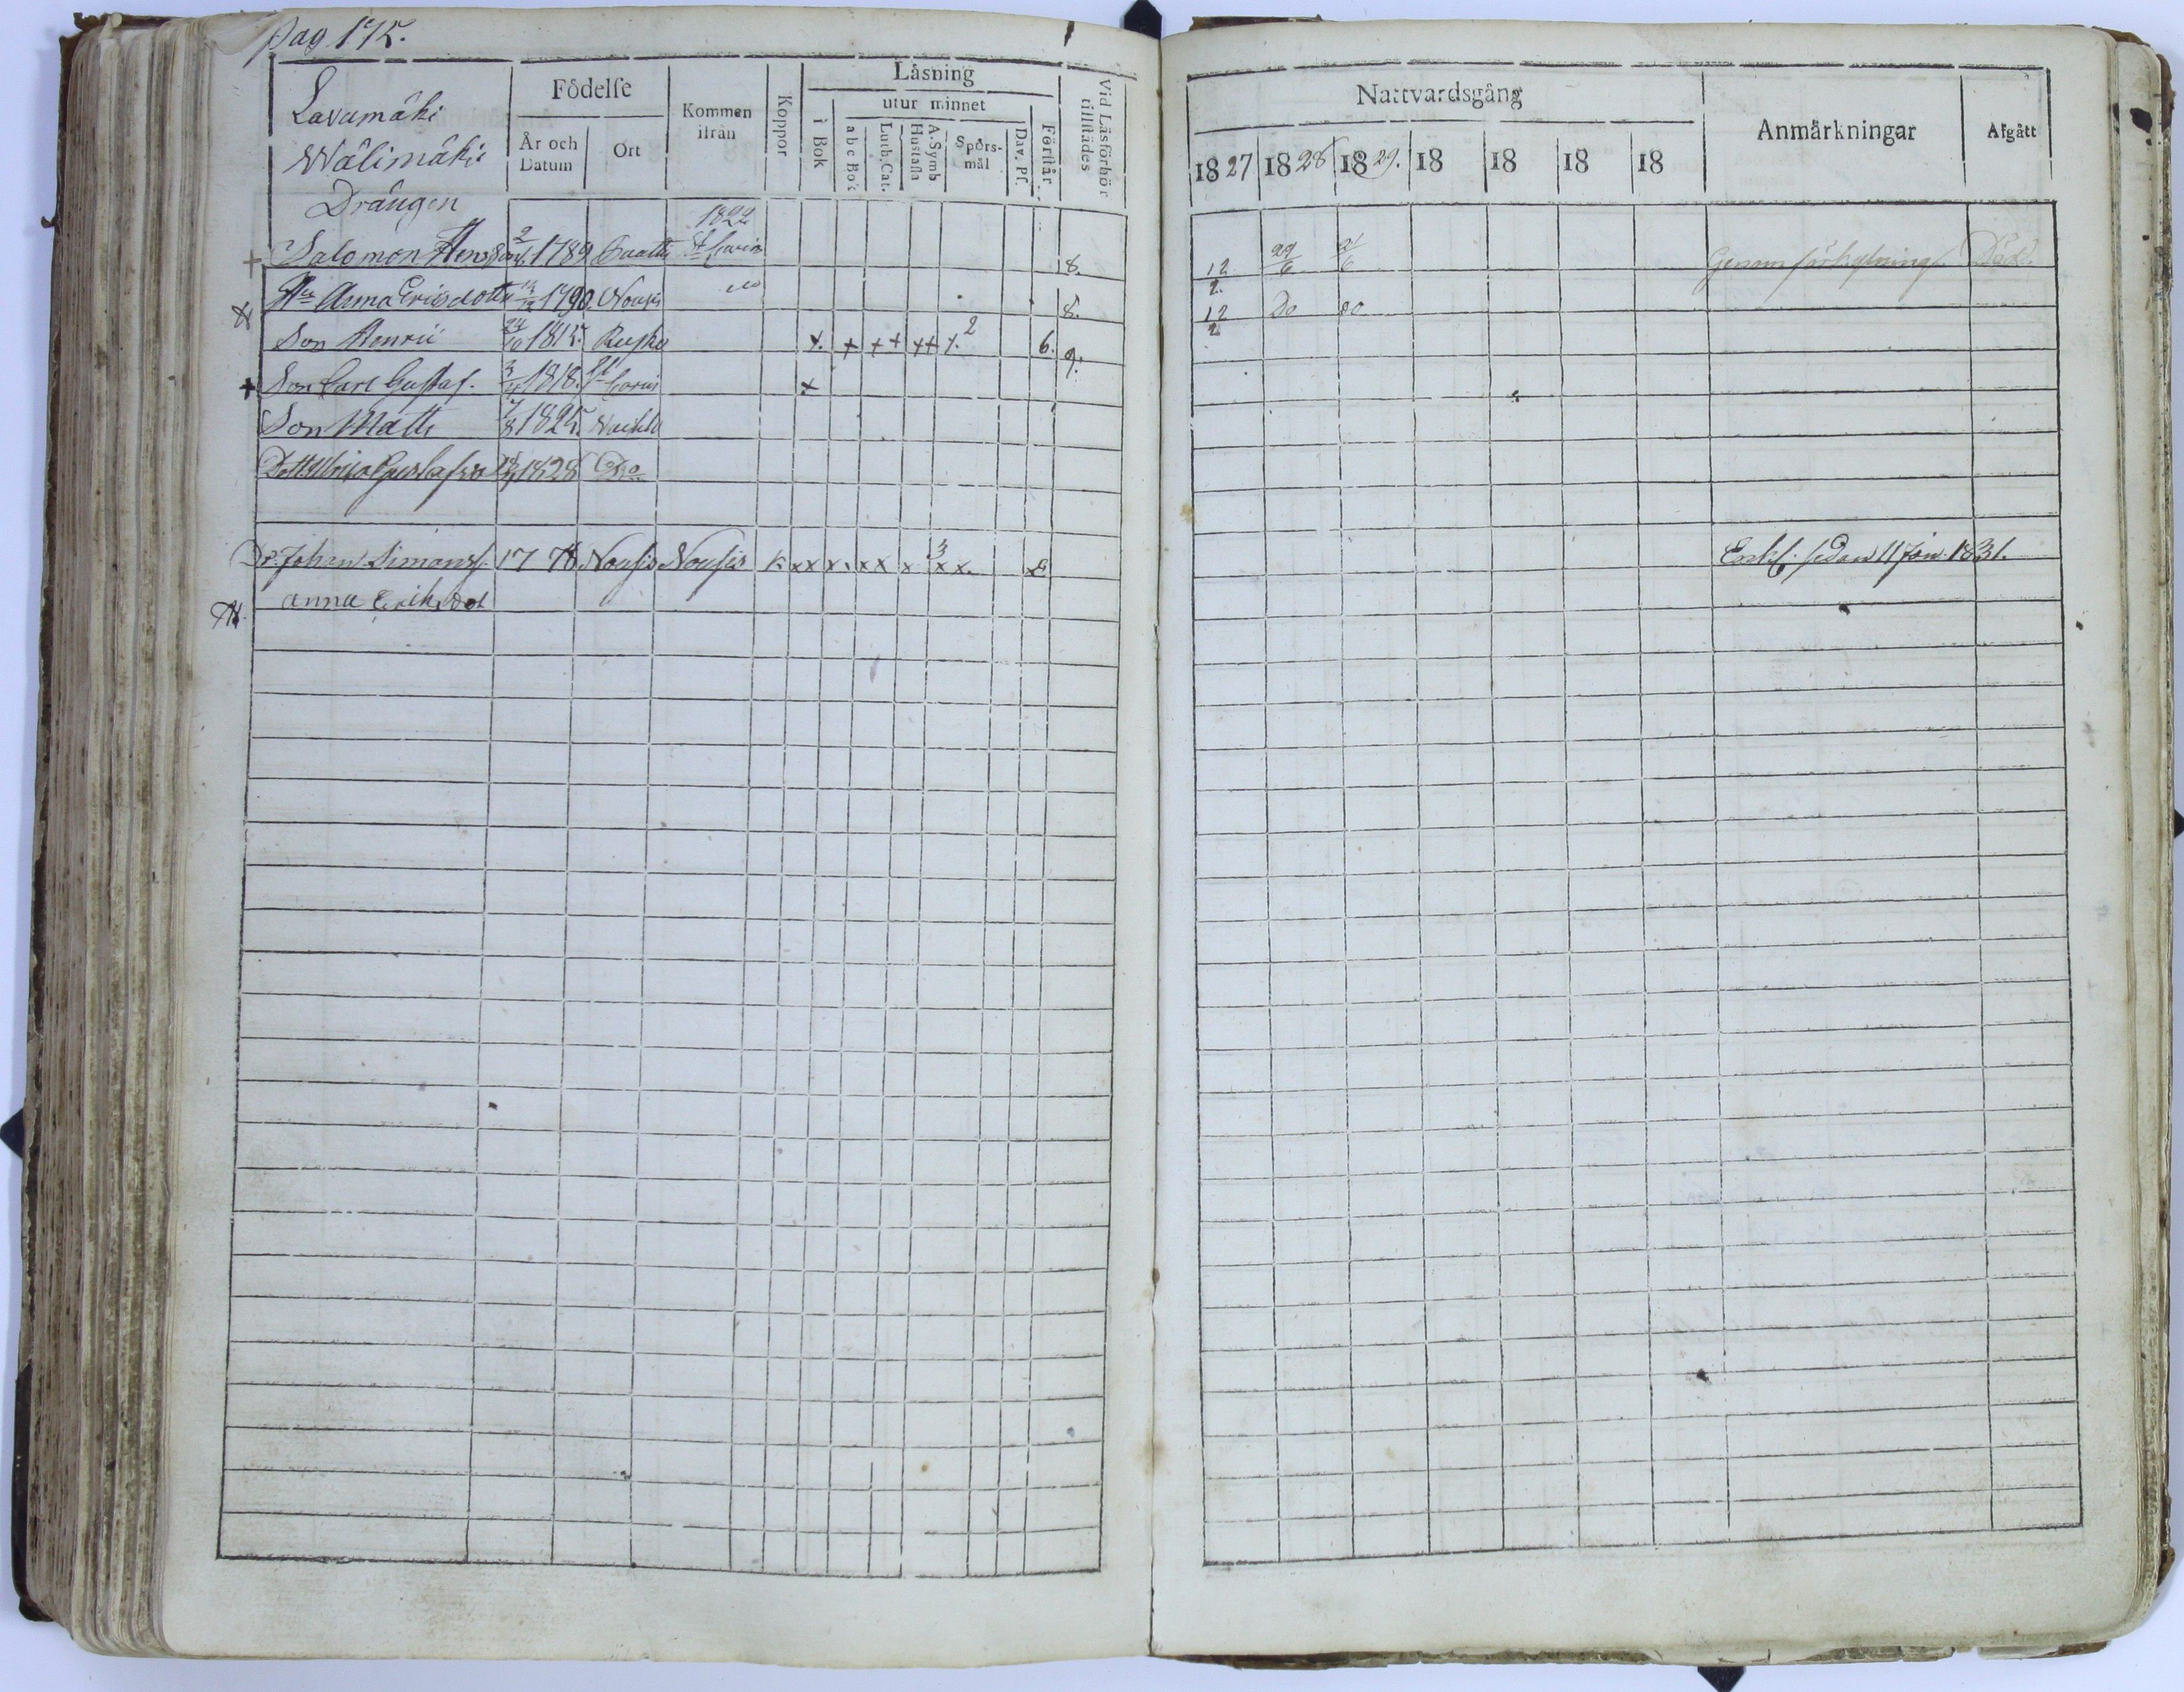 pag. 175.
Lavamäki
Wälimäki
Födelse
År och Datum
Ort
Kommen ifrån
Koppor
Läsning
i Bok
utur minnet
a b c Bok
Luth. Cat.
A. Symb Hustafla
Spörsmål
Dav. Ps.
Förstår
Vid Läsförhör tillstädes
Nattvardsgång
1827 1828 1829. 18 18 18 18
Anmärkningar
Afgått
Drängen
1822
+ Salomon 1789 8. 12 2. 29/6 21/6 Genom Död.
Hu Anna Ericsdotter 1790. Nousis do 8. 12 2 Do do
Son Henric 24/10 1815. Rusko x. + + + ++ x. 2 6. 9.
+ Son Carl Gustaf. 1818. x
Son Matts 7/8 1825.
Dott Ulrica Gustafva 1828 Do
Dr. Johan Simonss. 1778 Nousis Nousis K. xx x x. xx x 3 xx. Enkl. sedan 11 Jan. 1831.
Anna Eriksdot